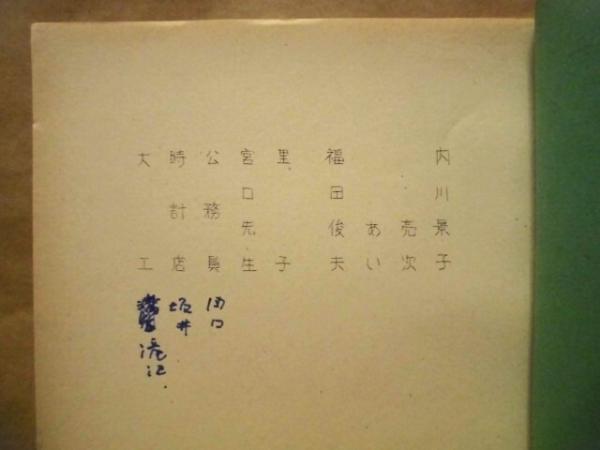 内川景子
亮次
あい
福田俊夫
里子
宮口先生
公務員 関口
時計店 坂井
大工